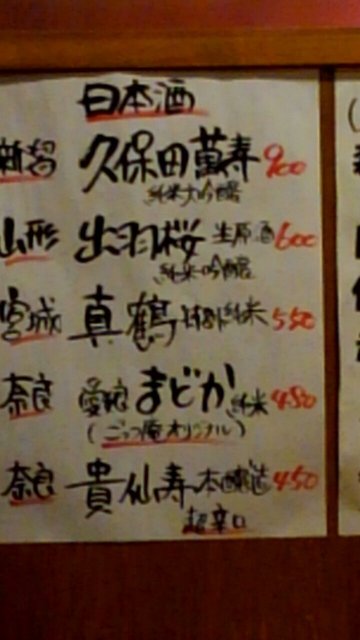 日本酒
新潟 久保田 萬寿 900
純米大吟醸
山形 出羽桜 生原酒 600
純米吟醸
宮城 真鶴 特別純米 550
奈良 まどか 純米 480
(ごっつ庵オリジナル)
奈良 貴仙寿 本醸造 450
超辛口